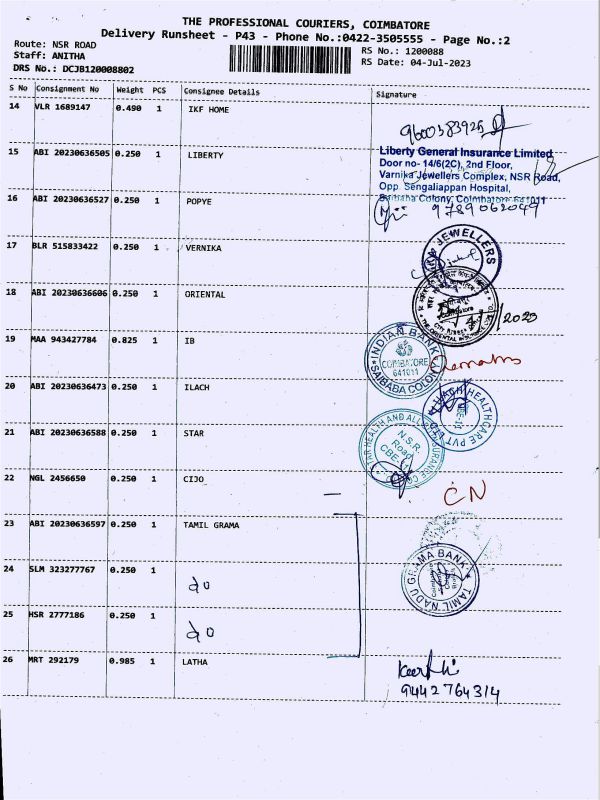 THE PROFESSIONAL COURIERS, COIMBATORE
Delivery Runsheet - P43 - Phone No.:0422-3505555 - Page No.:2
Route: NSR ROAD
Staff: ANITHA
DRS No.: DCJB120008802
RS No.: 1200088
RS Date: 04-Jul-2023
S No Consignment No Weight PCS Consignee Details Signature
14 VLR 1689147 0.490 1 IKF HOME
9600383925
15 ABI 20230636505 0.250 1 LIBERTY
Liberty General Insurance Limited
Door no- 14/6(2C), 2nd Floor,
Varnika Jewellers Complex, NSR Road,
Opp. Sengaliappan Hospital,
Saibaba Colony, Coimbatore 641011
16 ABI 20230636527 0.250 1 POPYE
9789062049
17 BLR 515833422 0.250 1 VERNIKA
JEWELLERS
18 ABI 20230636606 0.250 1 ORIENTAL
THE ORIENTAL INSURANCE
/2023
19 MAA 943427784 0.825 1 IB
INDIAN BANK
COIMBATORE
641011
SAIBABA COLONY
20 ABI 20230636473 0.250 1 ILACH
HEALTHCARE PVT LTD
21 ABI 20230636588 0.250 1 STAR
STAR HEALTH AND ALLIED INSURANCE CO
N.S.R.
Road
CBE-
22 NGL 2456650 0.250 1 CIJO
CN
23 ABI 20230636597 0.250 1 TAMIL GRAMA
TAMIL NADU GRAMA BANK
24 SLM 323277767 0.250 1 do
25 HSR 2777186 0.250 1 do
26 MRT 292179 0.985 1 LATHA
Keerthi
9442764314